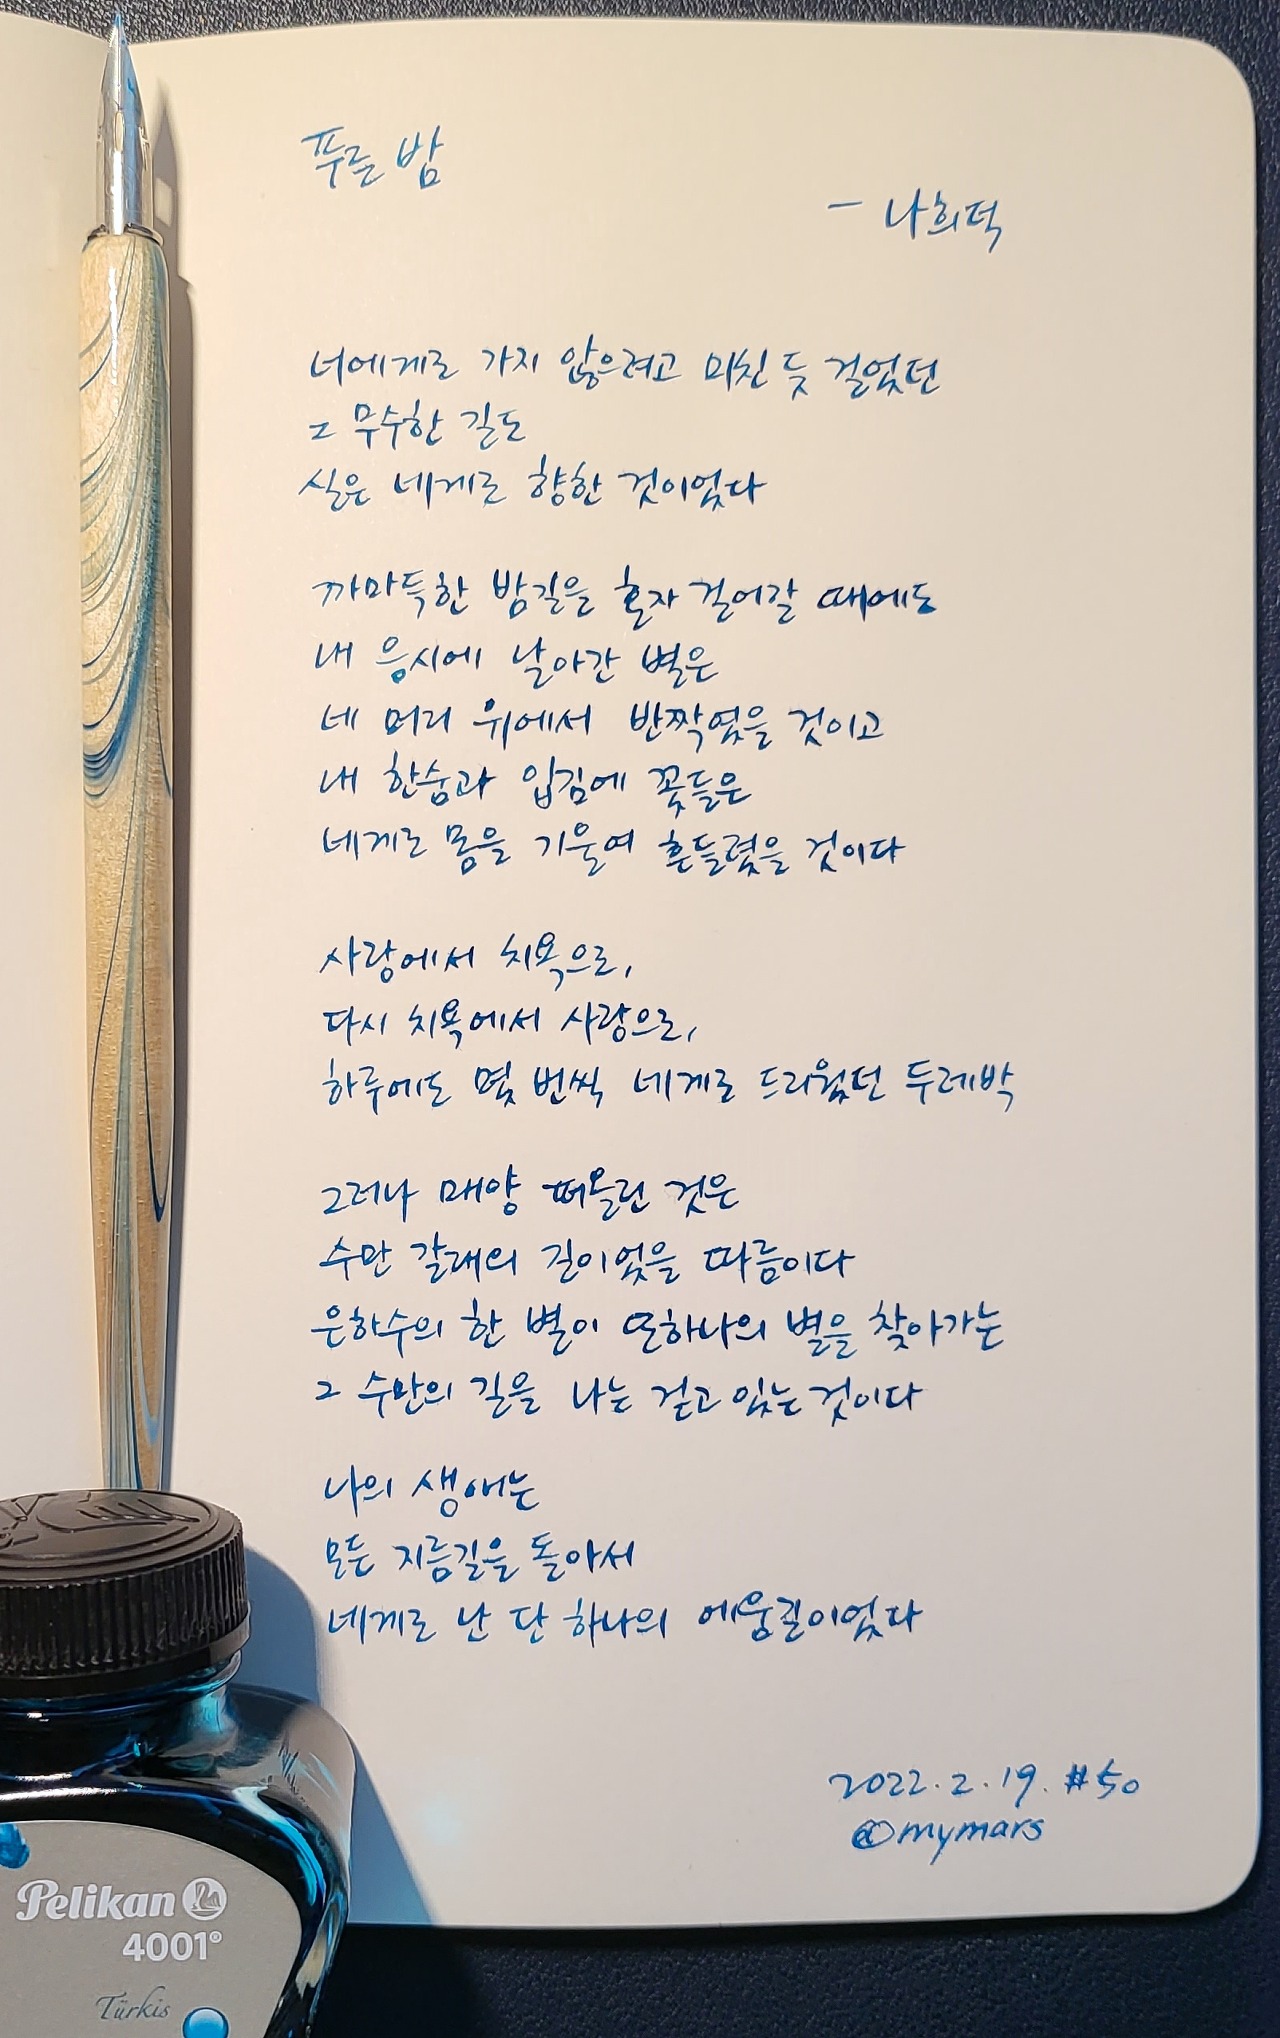 푸른 밤
- 나희덕
너에게로 가지 않으려고 미친 듯 걸었던
그 무수한 길도
실은 네게로 향한 것이었다
까마득한 밤길을 혼자 걸어갈 때에도
내 응시에 날아간 별은
네 머리 위에서 반짝였을 것이고
내 한숨과 입김에 꽃들은
네게로 몸을 기울여 흔들렸을 것이다
사랑에서 치욕으로,
다시 치욕에서 사랑으로,
하루에도 몇 번씩 네게로 드리웠던 두레박
그러나 매양 퍼올린 것은
수만 갈래의 길이었을 따름이다
은하수의 한 별이 또하나의 별을 찾아가는
그 수만의 길을 나는 걷고 있는 것이다
나의 생애는
모든 지름길을 돌아서
네게로 난 단 하나의 에움길이었다
2022.2.19. #50
@mymars
Pelikan
4001®
Türkis